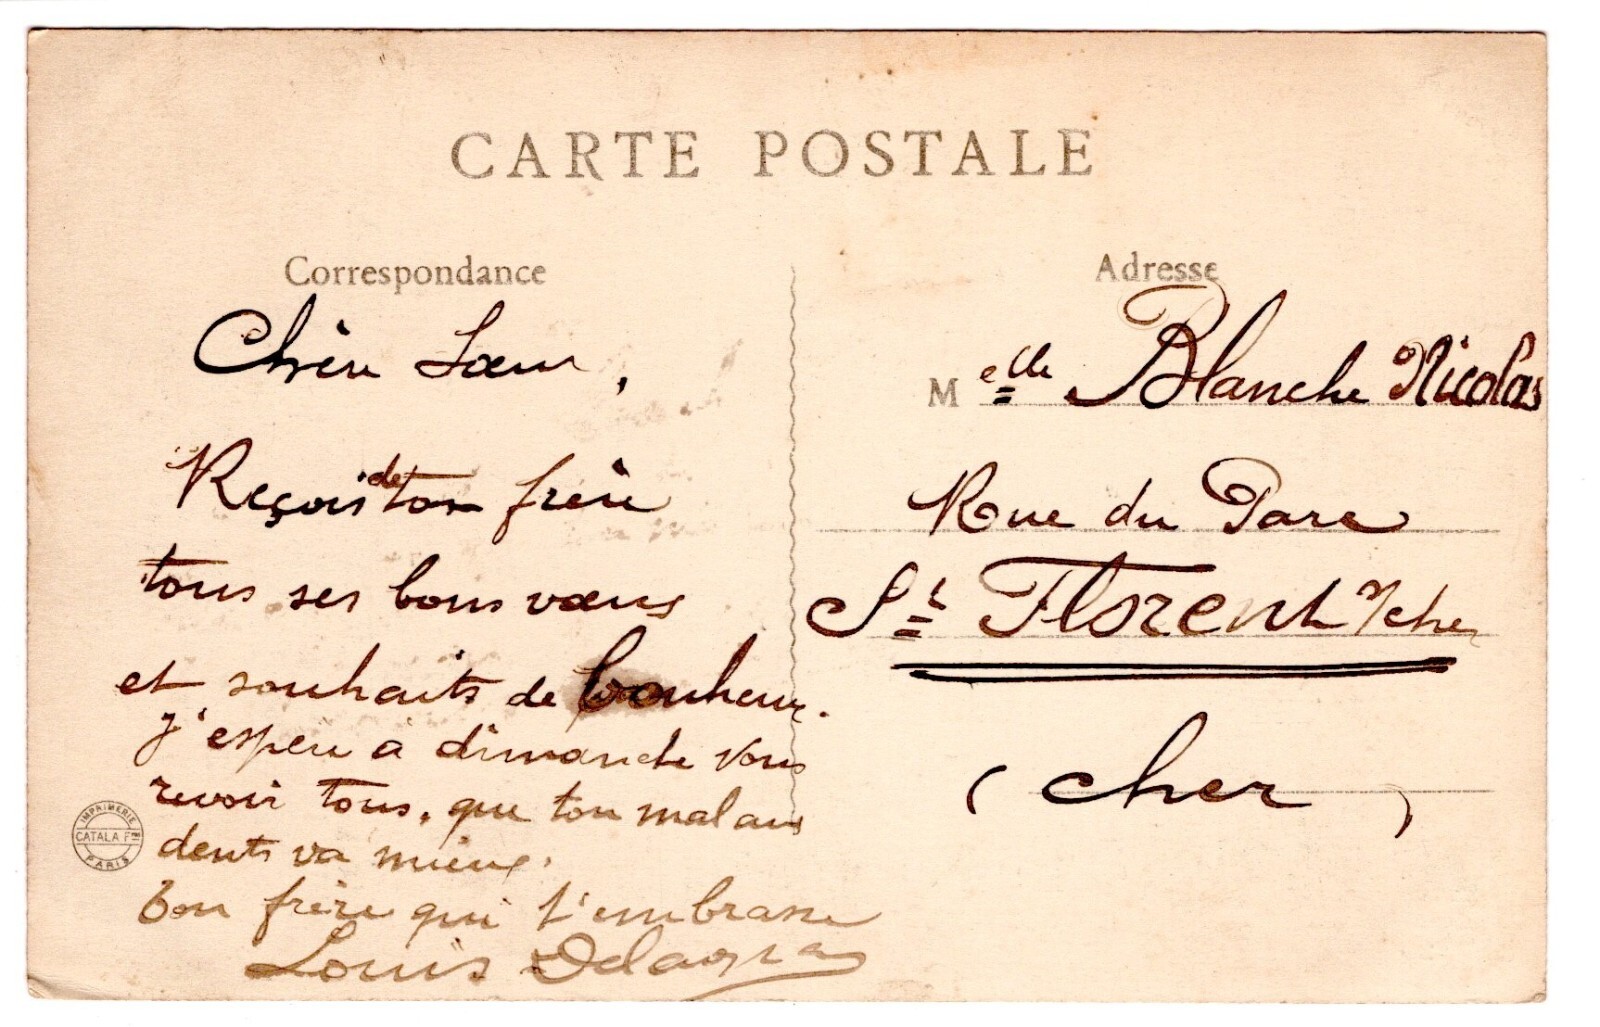 CARTE POSTALE
Correspondance
Chère Sœur,
Reçois de ton frère
tous ses bons vœux
et souhaits de bonheur.
j'espère à dimanche vous
revoir tous, que ton mal aux
dents va mieux.
Ton frère qui t'embrasse
Louis
IMPRIMERIE
CATALA Fres
PARIS
Adresse
Melle Blanche Nicolas
Rue du Parc
St Florent s/cher
(Cher)